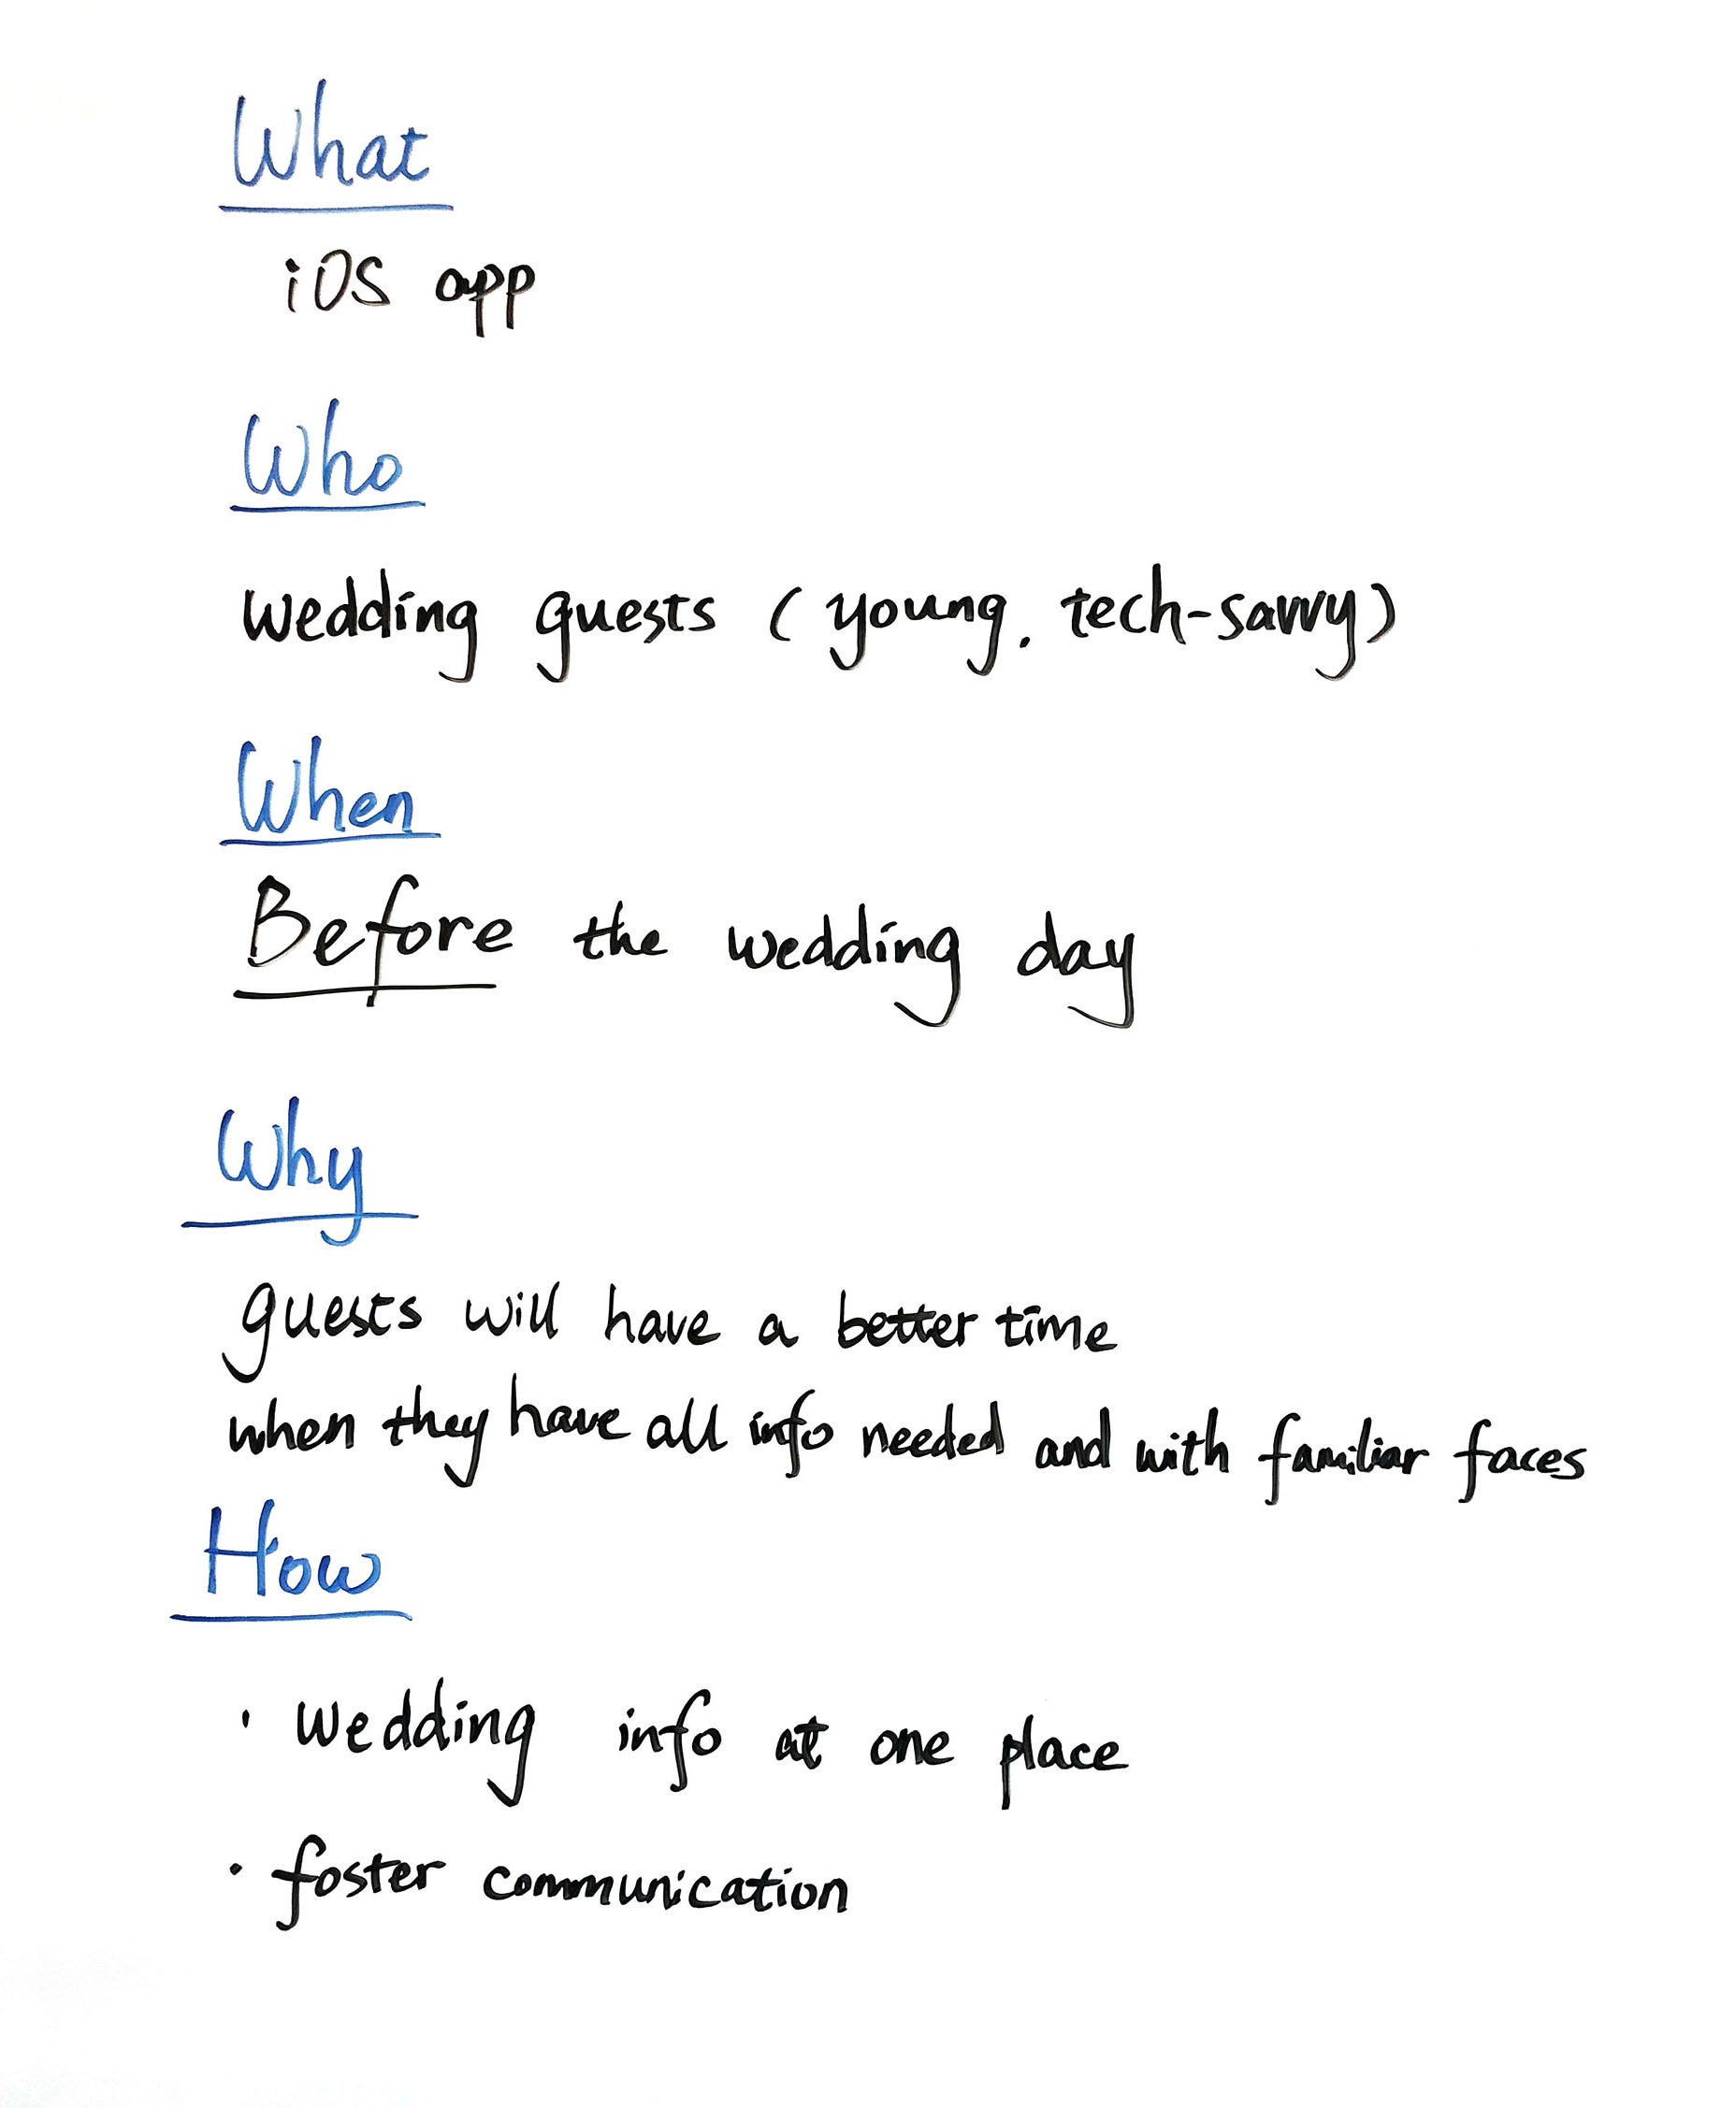 What
iOS app
Who
wedding guests (young. tech-savvy)
When
Before the wedding day
Why
guests will have a better time
when they have all info needed and with familiar faces
How
· wedding info at one place
· foster communication